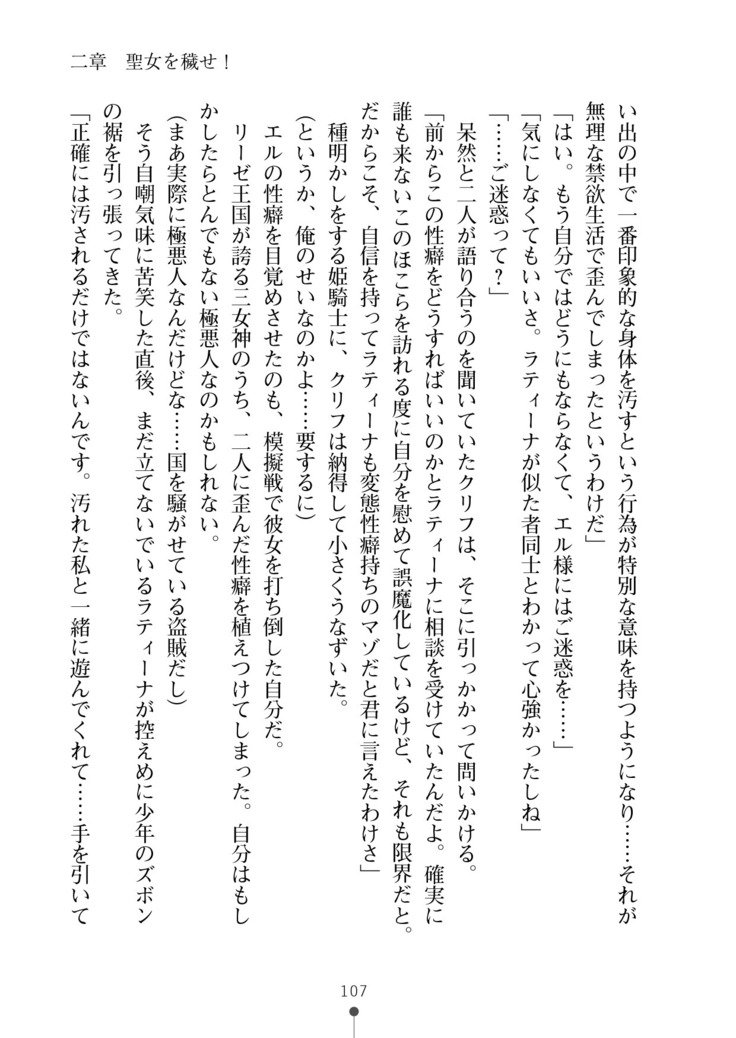 二章　聖女を穢せ！
い出の中で一番印象的な身体を汚すという行為が特別な意味を持つようになり……それが
無理な禁欲生活で歪んでしまったというわけだ」
「はい。もう自分ではどうにもならなくて、エル様にはご迷惑を……」
「気にしなくてもいいさ。ラティーナが似た者同士とわかって心強かったしね」
「……ご迷惑って？」
呆然と二人が語り合うのを聞いていたクリフは、そこに引っかかって問いかける。
「前からこの性癖をどうすればいいのかとラティーナに相談を受けていたんだよ。確実に
誰も来ないこのほこらを訪れる度に自分を慰めて誤魔化しているけど、それも限界だと。
だからこそ、自信を持ってラティーナも変態性癖持ちのマゾだと君に言えたわけさ」
種明かしをする姫騎士に、クリフは納得して小さくうなずいた。
（というか、俺のせいなのかよ……要するに）
エルの性癖を目覚めさせたのも、模擬戦で彼女を打ち倒した自分だ。
リーゼ王国が誇る三女神のうち、二人に歪んだ性癖を植えつけてしまった。自分はもし
かしたらとんでもない極悪人なのかもしれない。
（まあ実際に極悪人なんだけどな……国を騒がせている盗賊だし）
そう自嘲気味に苦笑した直後、まだ立てないでいるラティーナが控えめに少年のズボン
の裾を引っ張ってきた。
「正確には汚されるだけではないんです。汚れた私と一緒に遊んでくれて……手を引いて
107